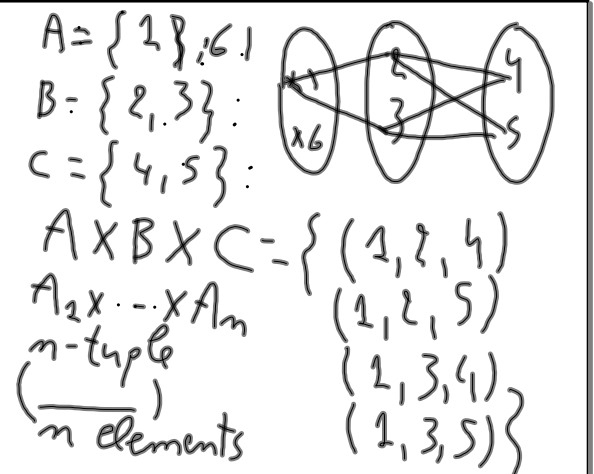 A = { 1 } ; 6 .
B = { 2, 3 } .
C = { 4, 5 } .
x 1
x 6
2
3
4
5
A X B X C = { (1, 2, 4)
(1, 2, 5)
(1, 3, 4)
(1, 3, 5) }
A₁ x . - . x Aₙ
n-tuple
( ______ )
n elements